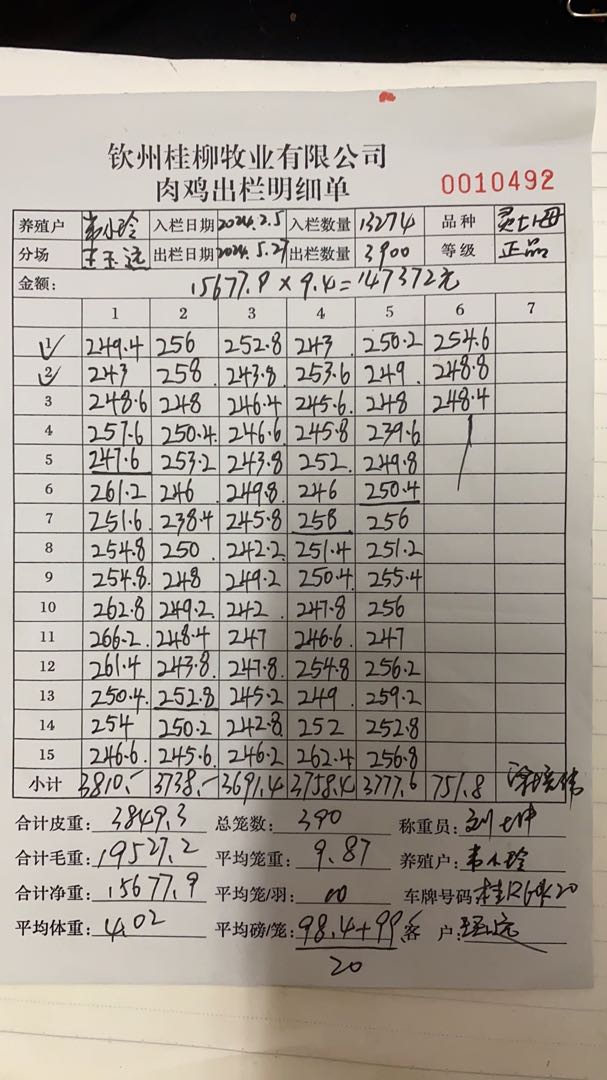 钦州桂柳牧业有限公司
肉鸡出栏明细单
0010492
养殖户 韦小玲 入栏日期 2024.2.5 入栏数量 13274 品种
分场 出栏日期 2024.5.27 出栏数量 3900 等级 正品
金额: 15677.9 × 9.4 = 147372元
1 2 3 4 5 6 7
1 249.4 256 252.8 243 250.2 254.6
2 243 258 243.8 253.6 249 248.8
3 248.6 248 246.4 245.6 248 248.4
4 257.6 250.4 246.6 245.8 239.6
5 247.6 253.2 243.8 252 249.8
6 261.2 246 249.8 246 250.4
7 251.6 238.4 245.8 258 256
8 254.8 250 242.2 251.4 251.2
9 254.8 248 249.2 250.4 255.4
10 262.8 249.2 242 247.8 256
11 266.2 248.4 247 246.6 247
12 261.4 243.8 247.8 254.8 256.2
13 250.4 252.8 245.2 249 259.2
14 254 250.2 242.8 252 252.8
15 246.6 245.6 246.2 262.4 256.8
小计 3810.- 3738.- 3691.4 3758.4 3777.6 751.8
合计皮重: 3849.3 总笼数: 390 称重员:
合计毛重: 19527.2 平均笼重: 9.87 养殖户: 韦小玲
合计净重: 15677.9 平均笼/羽: 10 车牌号码
平均体重: 4.02 平均磅/笼: 98.4+99 客 户:
20